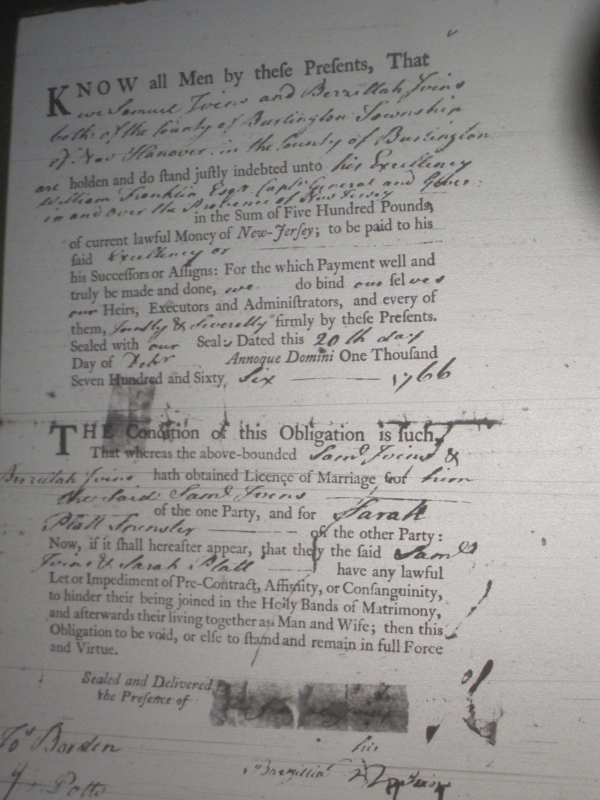 KNOW all Men by theſe Preſents, That
we Samuel Ivins and Berzillah Ivins
both of the County of Burlington Township
of New Hanover in the County of Burlington
are holden and do ſtand juſtly indebted unto his Excellency
William Franklin Esqr. Captn. General and Gover
in and over the Province of New Jersey
in the Sum of Five Hundred Pounds,
of current lawful Money of New-Jerſey; to be paid to his
ſaid Excellency or
his Succeſſors or Aſſigns: For the which Payment well and
truly be made and done, we do bind our ſelves
our Heirs, Executors and Adminiſtrators, and every of
them, Jointly & Severally firmly by theſe Preſents.
Sealed with our Seals Dated this 20th day
Day of Annoque Domini One Thouſand
Seven Hundred and Sixty Six 1766
THE Condition of this Obligation is ſuch,
That whereas the above-bounded Saml. Ivins &
Berzillah Ivins hath obtained Licence of Marriage for him
the said Saml. Ivens
of the one Party, and for Sarah
Platt Spinster on the other Party:
Now, if it ſhall hereafter appear, that they the ſaid Saml.
Ivins & Sarah Platt have any lawful
Let or Impediment of Pre-Contract, Affinity, or Conſanguinity,
to hinder their being joined in the Holy Bands of Matrimony,
and afterwards their living together as Man and Wife; then this
Obligation to be void, or elſe to ſtand and remain in full Force
and Virtue.
Sealed and Delivered
the Preſence of
Jos Borden his
Potts Brazillia Ivins